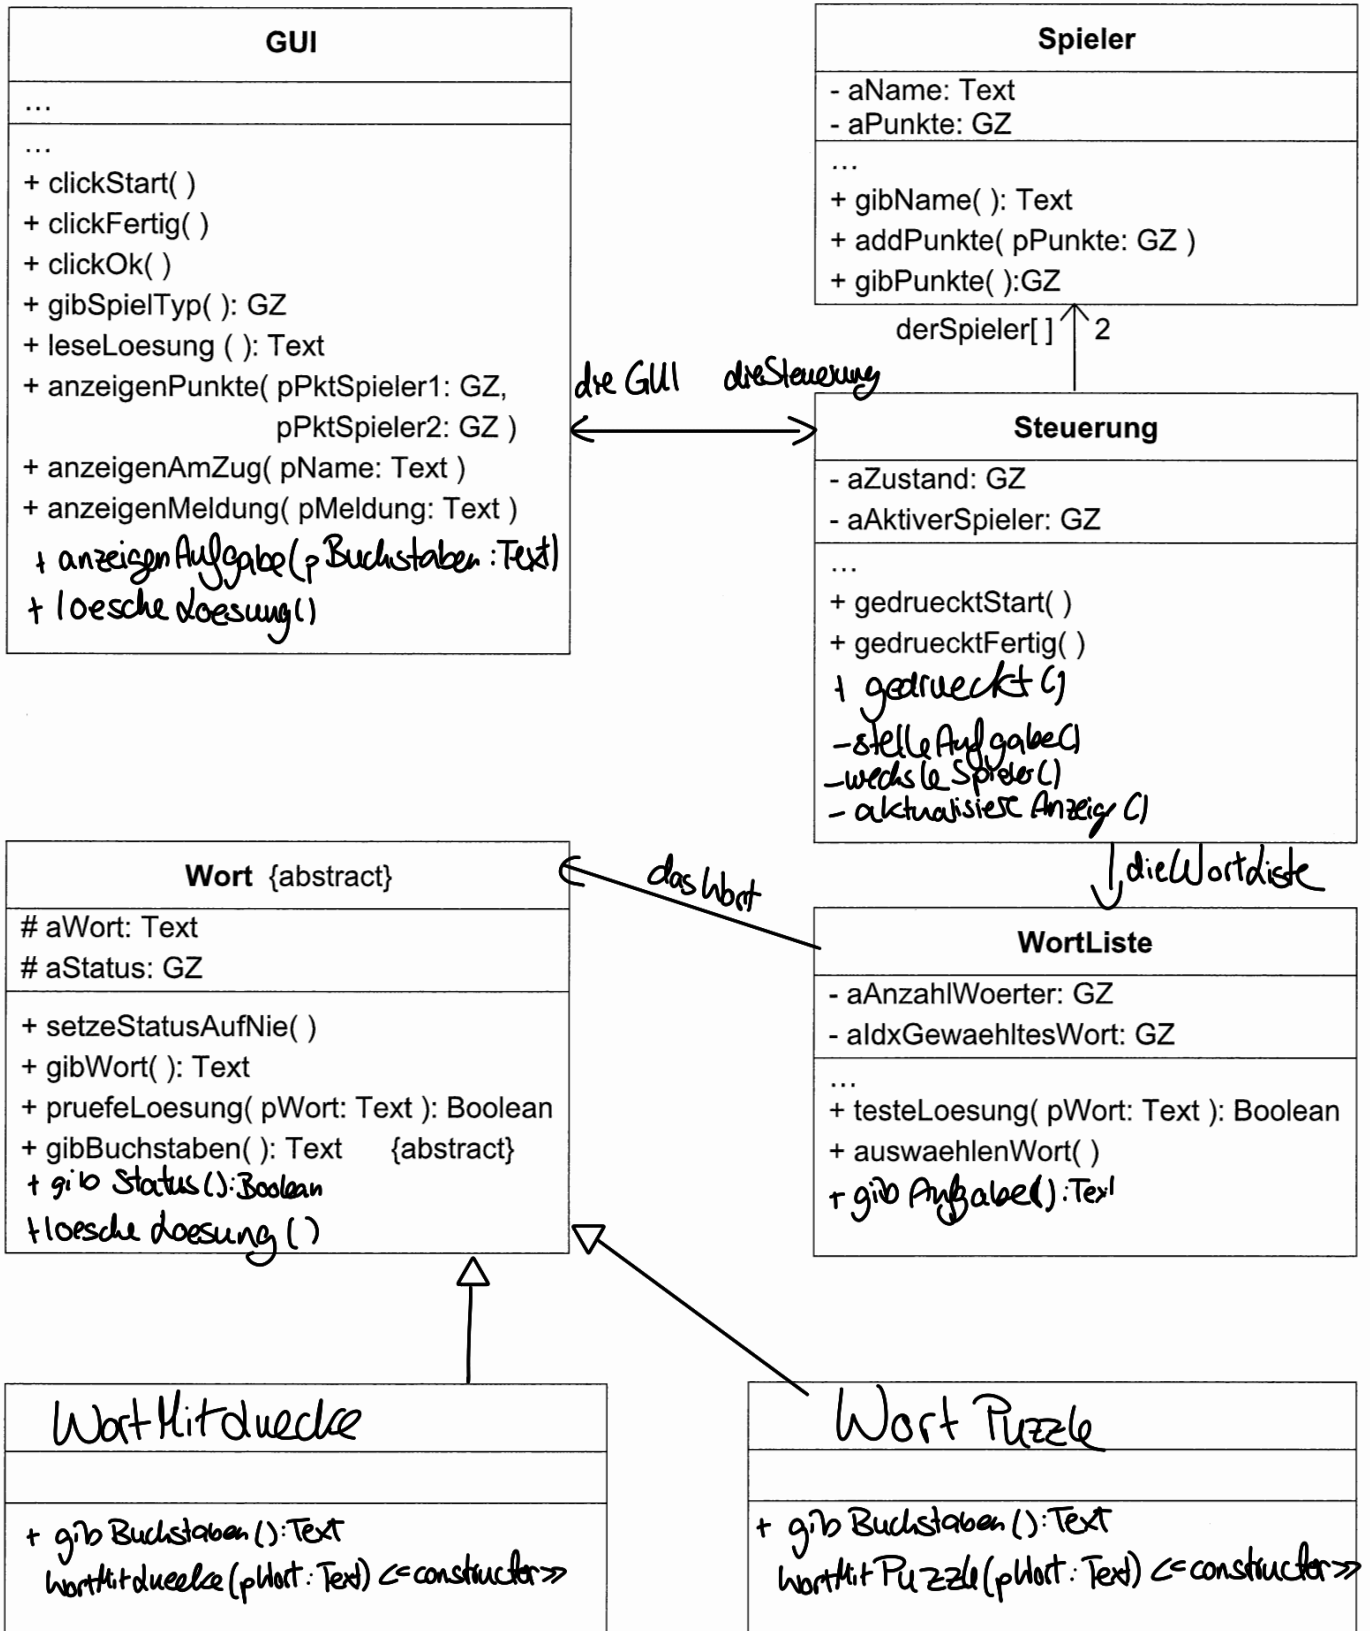 GUI
...
...
+ clickStart( )
+ clickFertig( )
+ clickOk( )
+ gibSpielTyp( ): GZ
+ leseLoesung ( ): Text
+ anzeigenPunkte( pPktSpieler1: GZ,
pPktSpieler2: GZ )
+ anzeigenAmZug( pName: Text )
+ anzeigenMeldung( pMeldung: Text )
+ anzeigenAufgabe(pBuchstaben:Text)
+ loescheLoesung()
Spieler
- aName: Text
- aPunkte: GZ
...
+ gibName( ): Text
+ addPunkte( pPunkte: GZ )
+ gibPunkte( ):GZ
derSpieler[ ] 2
die GUI dieSteuerung
Steuerung
- aZustand: GZ
- aAktiverSpieler: GZ
...
+ gedruecktStart( )
+ gedruecktFertig( )
+ gedrueckt()
- stelleAufgabe()
- wechsleSpieler()
- aktualisiereAnzeige()
dieWortListe
Wort {abstract}
# aWort: Text
# aStatus: GZ
+ setzeStatusAufNie( )
+ gibWort( ): Text
+ pruefeLoesung( pWort: Text ): Boolean
+ gibBuchstaben( ): Text {abstract}
+ gib Status():Boolean
+ loesche Loesung ()
dasWort
WortListe
- aAnzahlWoerter: GZ
- aIdxGewaehltesWort: GZ
...
+ testeLoesung( pWort: Text ): Boolean
+ auswaehlenWort( )
+ gib Aufgabe():Text
WortMitLuecke
+ gib Buchstaben ():Text
WortMitLuecke(pWort: Text) <<constructor>>
Wort Puzzle
+ gib Buchstaben ():Text
WortMitPuzzle(pWort: Text) <<constructor>>